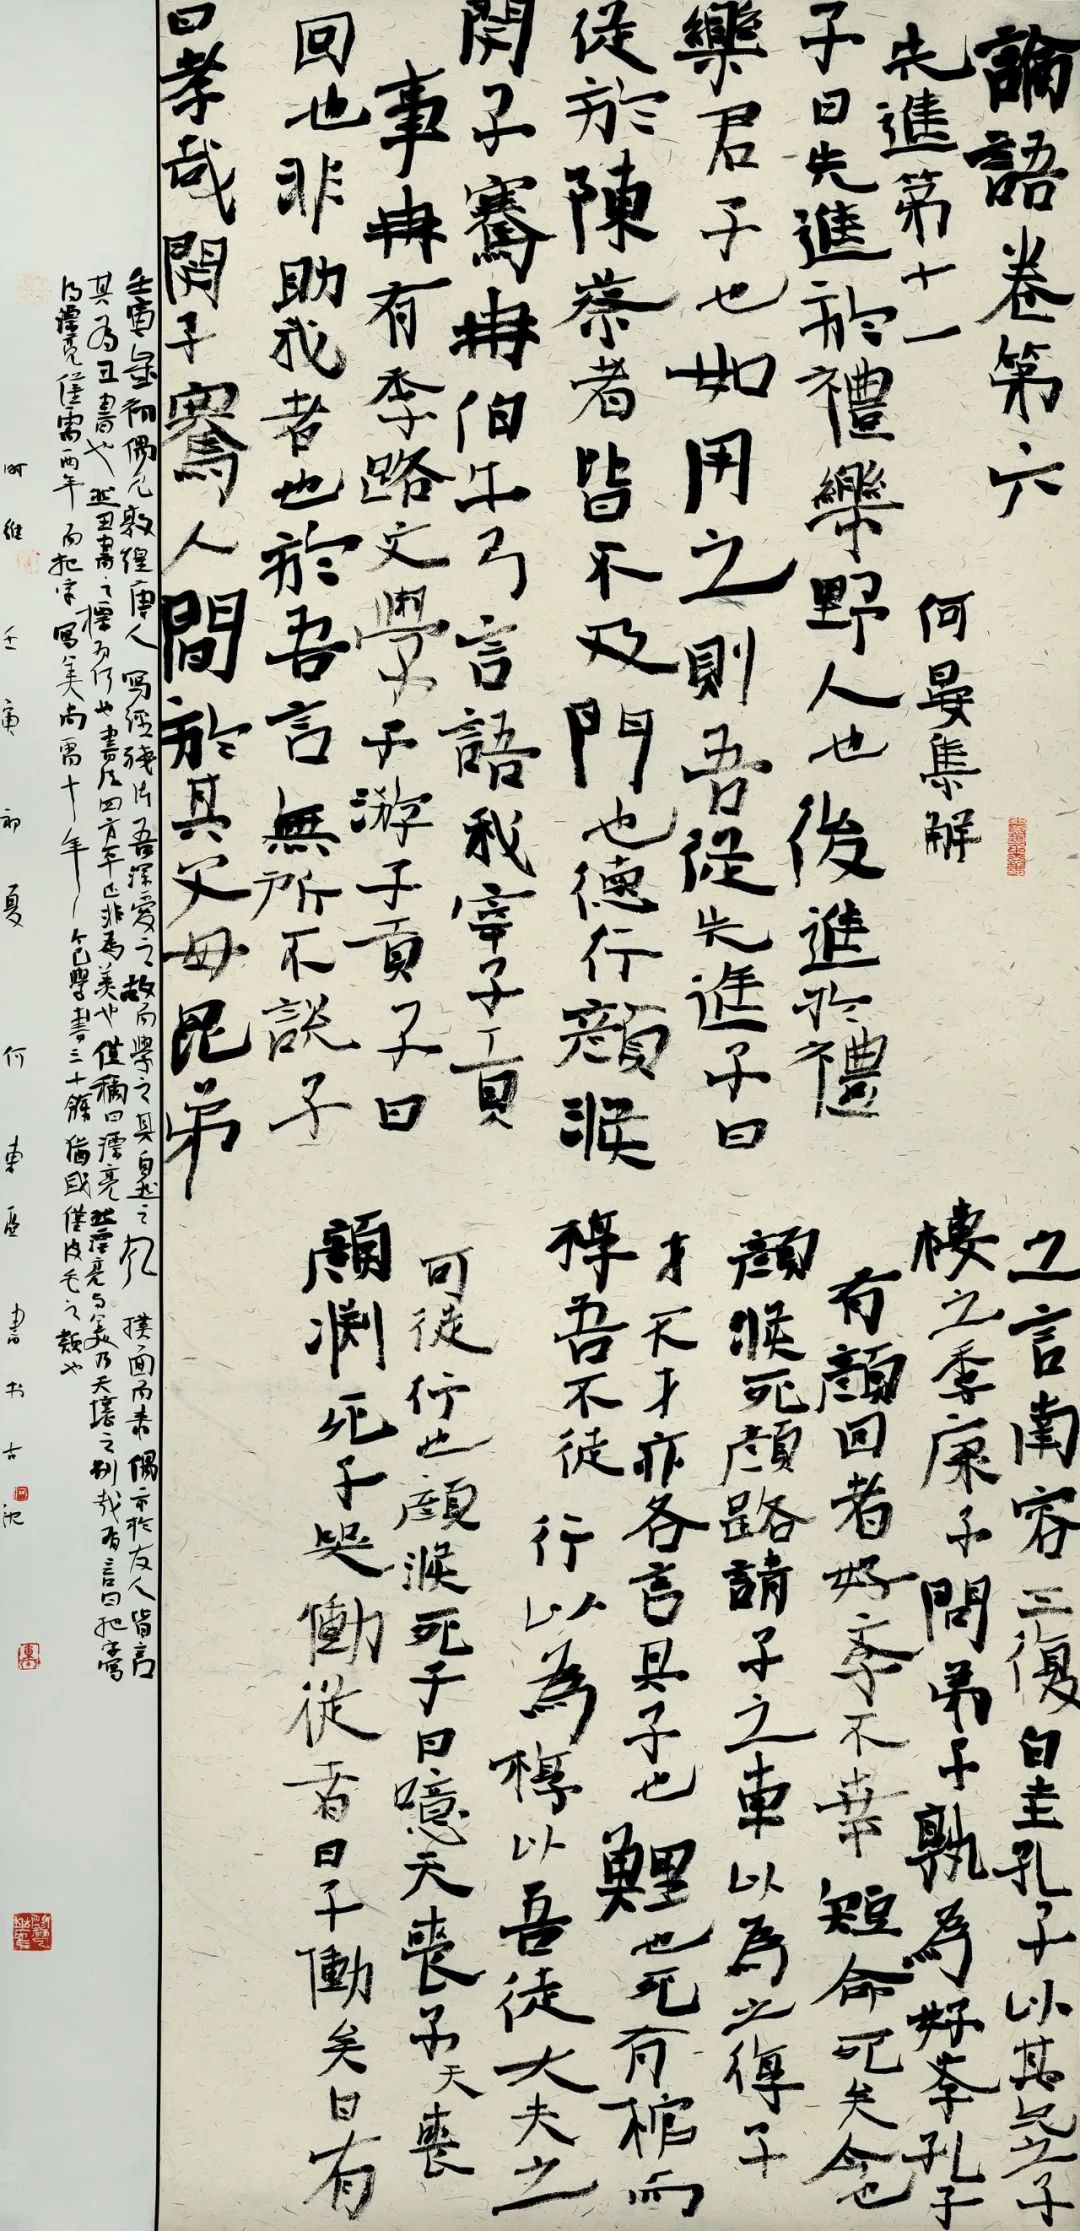 論語卷第六
先進第十一 何晏集解
子曰先進於禮樂野人也後進於禮
樂君子也如用之則吾從先進子曰
從於陳蔡者皆不及門也德行顏淵
閔子騫冉伯牛弓言語我宰子貢
事冉有季路文學子游子貢子曰
回也非助我者也於吾言無所不說子
曰孝哉閔子騫人間於其父母昆弟
之言南容三復白圭孔子以其兄之子
棲之季康子問弟子孰為好李孔子
有顏回者好季不幸短命死矣今也
顏淵死顏路請子之車以為之椁子
才不才亦各言其子也鯉也死有棺而
椁吾不徒行以為椁以吾徒大夫之
可徒行也顏淵死子曰噫天喪予天喪
顏淵死子哭慟從者曰子慟矣曰有
壬寅歲初偶見敦煌唐人寫經殘片吾深愛之故而學之其自然之 撲面而來偶示於友人皆言
其為丑書也然丑書之標為何也書法四方平正非為美也僅稱曰漂亮然漂亮與美乃天壤之別哉有言曰把字寫
得漂亮僅需兩年而把字寫美尚需十年 學書三十餘 僅皮毛之類也
時維壬寅初夏何東 書於古沈